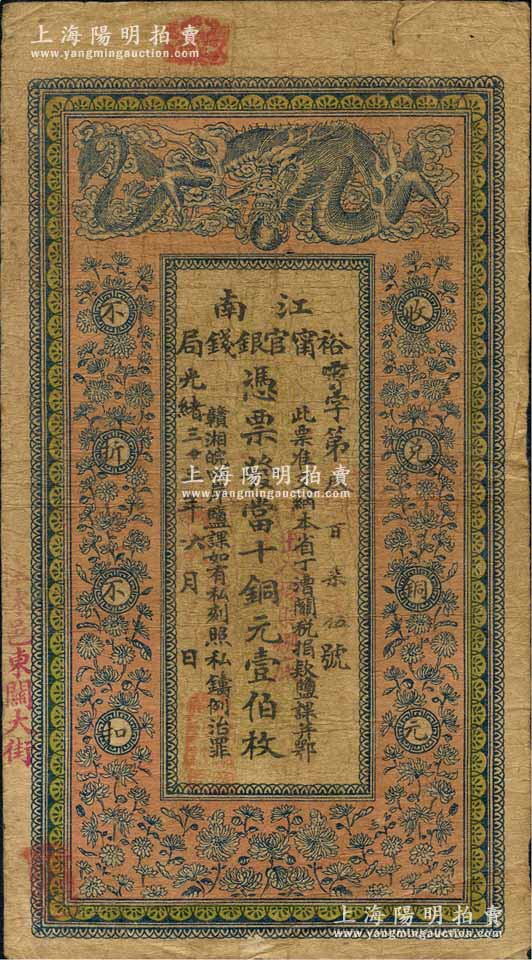 上海陽明拍賣
www.yangmingauction.com
江南
裕甯官銀錢局
字第 百 柒 伍號
此票准 納本省丁漕關稅捐款鹽課并鄂
憑票 當十銅元壹伯枚
贛湘皖 鹽課如有私刻照私鑄例治罪
光緒三十 年六月 日
收兌銅元
不折不扣
上海陽明拍賣
www.yangmingauction.com
邑東關大街
上海陽明拍賣
www.yangmingauction.com